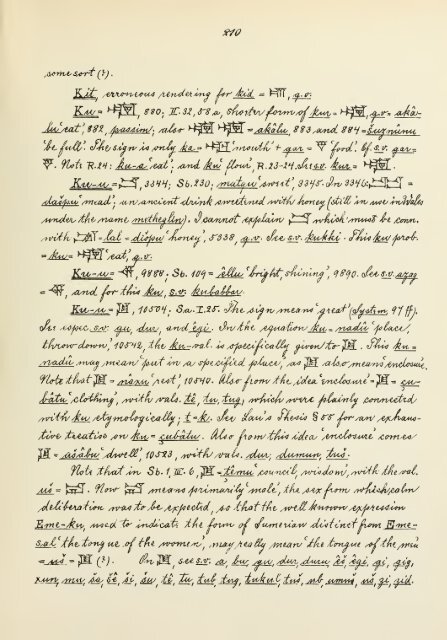 210
some sort (?).
Kit, erroneous rendering for kid = 𒆤, q.v.
Ku = 𒅥, 880; II. 32, 58.a, shorter form of kur = q.v. = akâ-
lu 'eat', 882, passim; also = akâlu, 883 and 884 = šuznûnu
'be full'. The sign is only ka = 'mouth' + gar = 'food'. Cf. s.v. gar =
Note R.24: ku-a 'eat'; and ku 'flour', R.23-24. See s.v. kur =
Ku-u = 3344; Sb. 230; mutqu 'sweet' 3345. In 3346:
dašpu 'mead'; an ancient drink sweetened with honey (still in use in Wales
under the name metheglin). I cannot explain which must be conn.
with -lal = dišpu 'honey', 5338, q.v. See s.v. kukki. This ku prob.
= ku = 'eat', q.v.
Ku-u = 9888; Sb. 109 = êllu 'bright, shining', 9890. See s.v. azag
= and for this ku, s.v. kubabbar.
Ku-u = 10504; Sa. I. 25. The sign means 'great' (System, 97 ff).
See espec. s.v. gu, dur, and êgi. In the equation ku = nadû 'place,
throw down', 10542, the ku-val. is specifically given to This ku =
nadû may mean 'put in a specified place', as also means 'enclosure'.
Note that = nâxu 'rest', 10540. Also from the idea 'enclosure' = çu-
bâtu 'clothing', with vals. tê, tu, tug, which were plainly connected
with ku etymologically; t = k. See Lau's Thesis §55 for an exhaus-
tive treatise on ku = çubâtu. Also from this idea 'enclosure' comes
= ašâbu 'dwell', 10523, with vals. dur, durun, tuš.
Note that in Sb. 1, III. 6, = têmu 'council, wisdom', with the val.
uš = Now means primarily 'male', the sex from which calm
deliberation was to be expected, so that the well known expression
Eme-ku, used to indicate the form of Sumerian distinct from Eme-
sal 'the tongue of the women', may really mean 'the tongue of the men'
= uš = (?). On see s.v. a, bu, gu, dur, duru, êš, êgi, gi, giš,
xun, mu, še, šê, ši, šu, tê, tu, tub, tug, tukul, tuš, ub, umuš, uš, zi, zid.